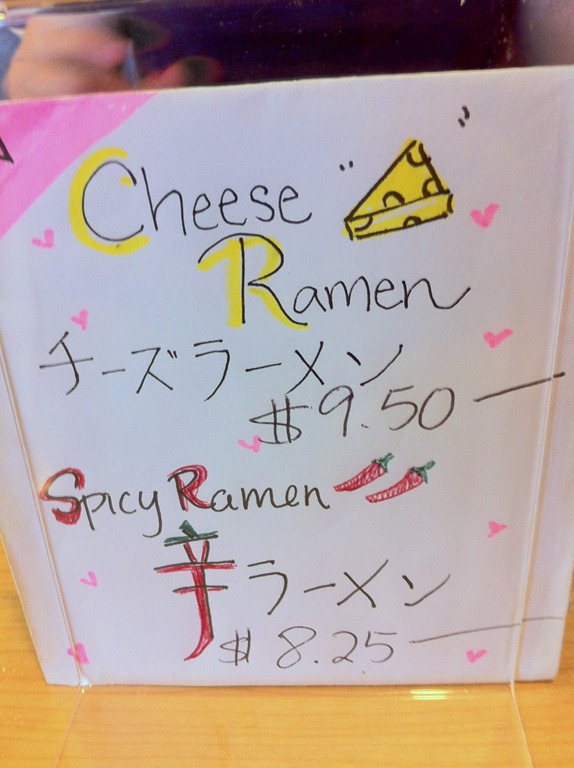 Cheese
Ramen
チーズラーメン
$9.50
Spicy Ramen
辛ラーメン
$8.25